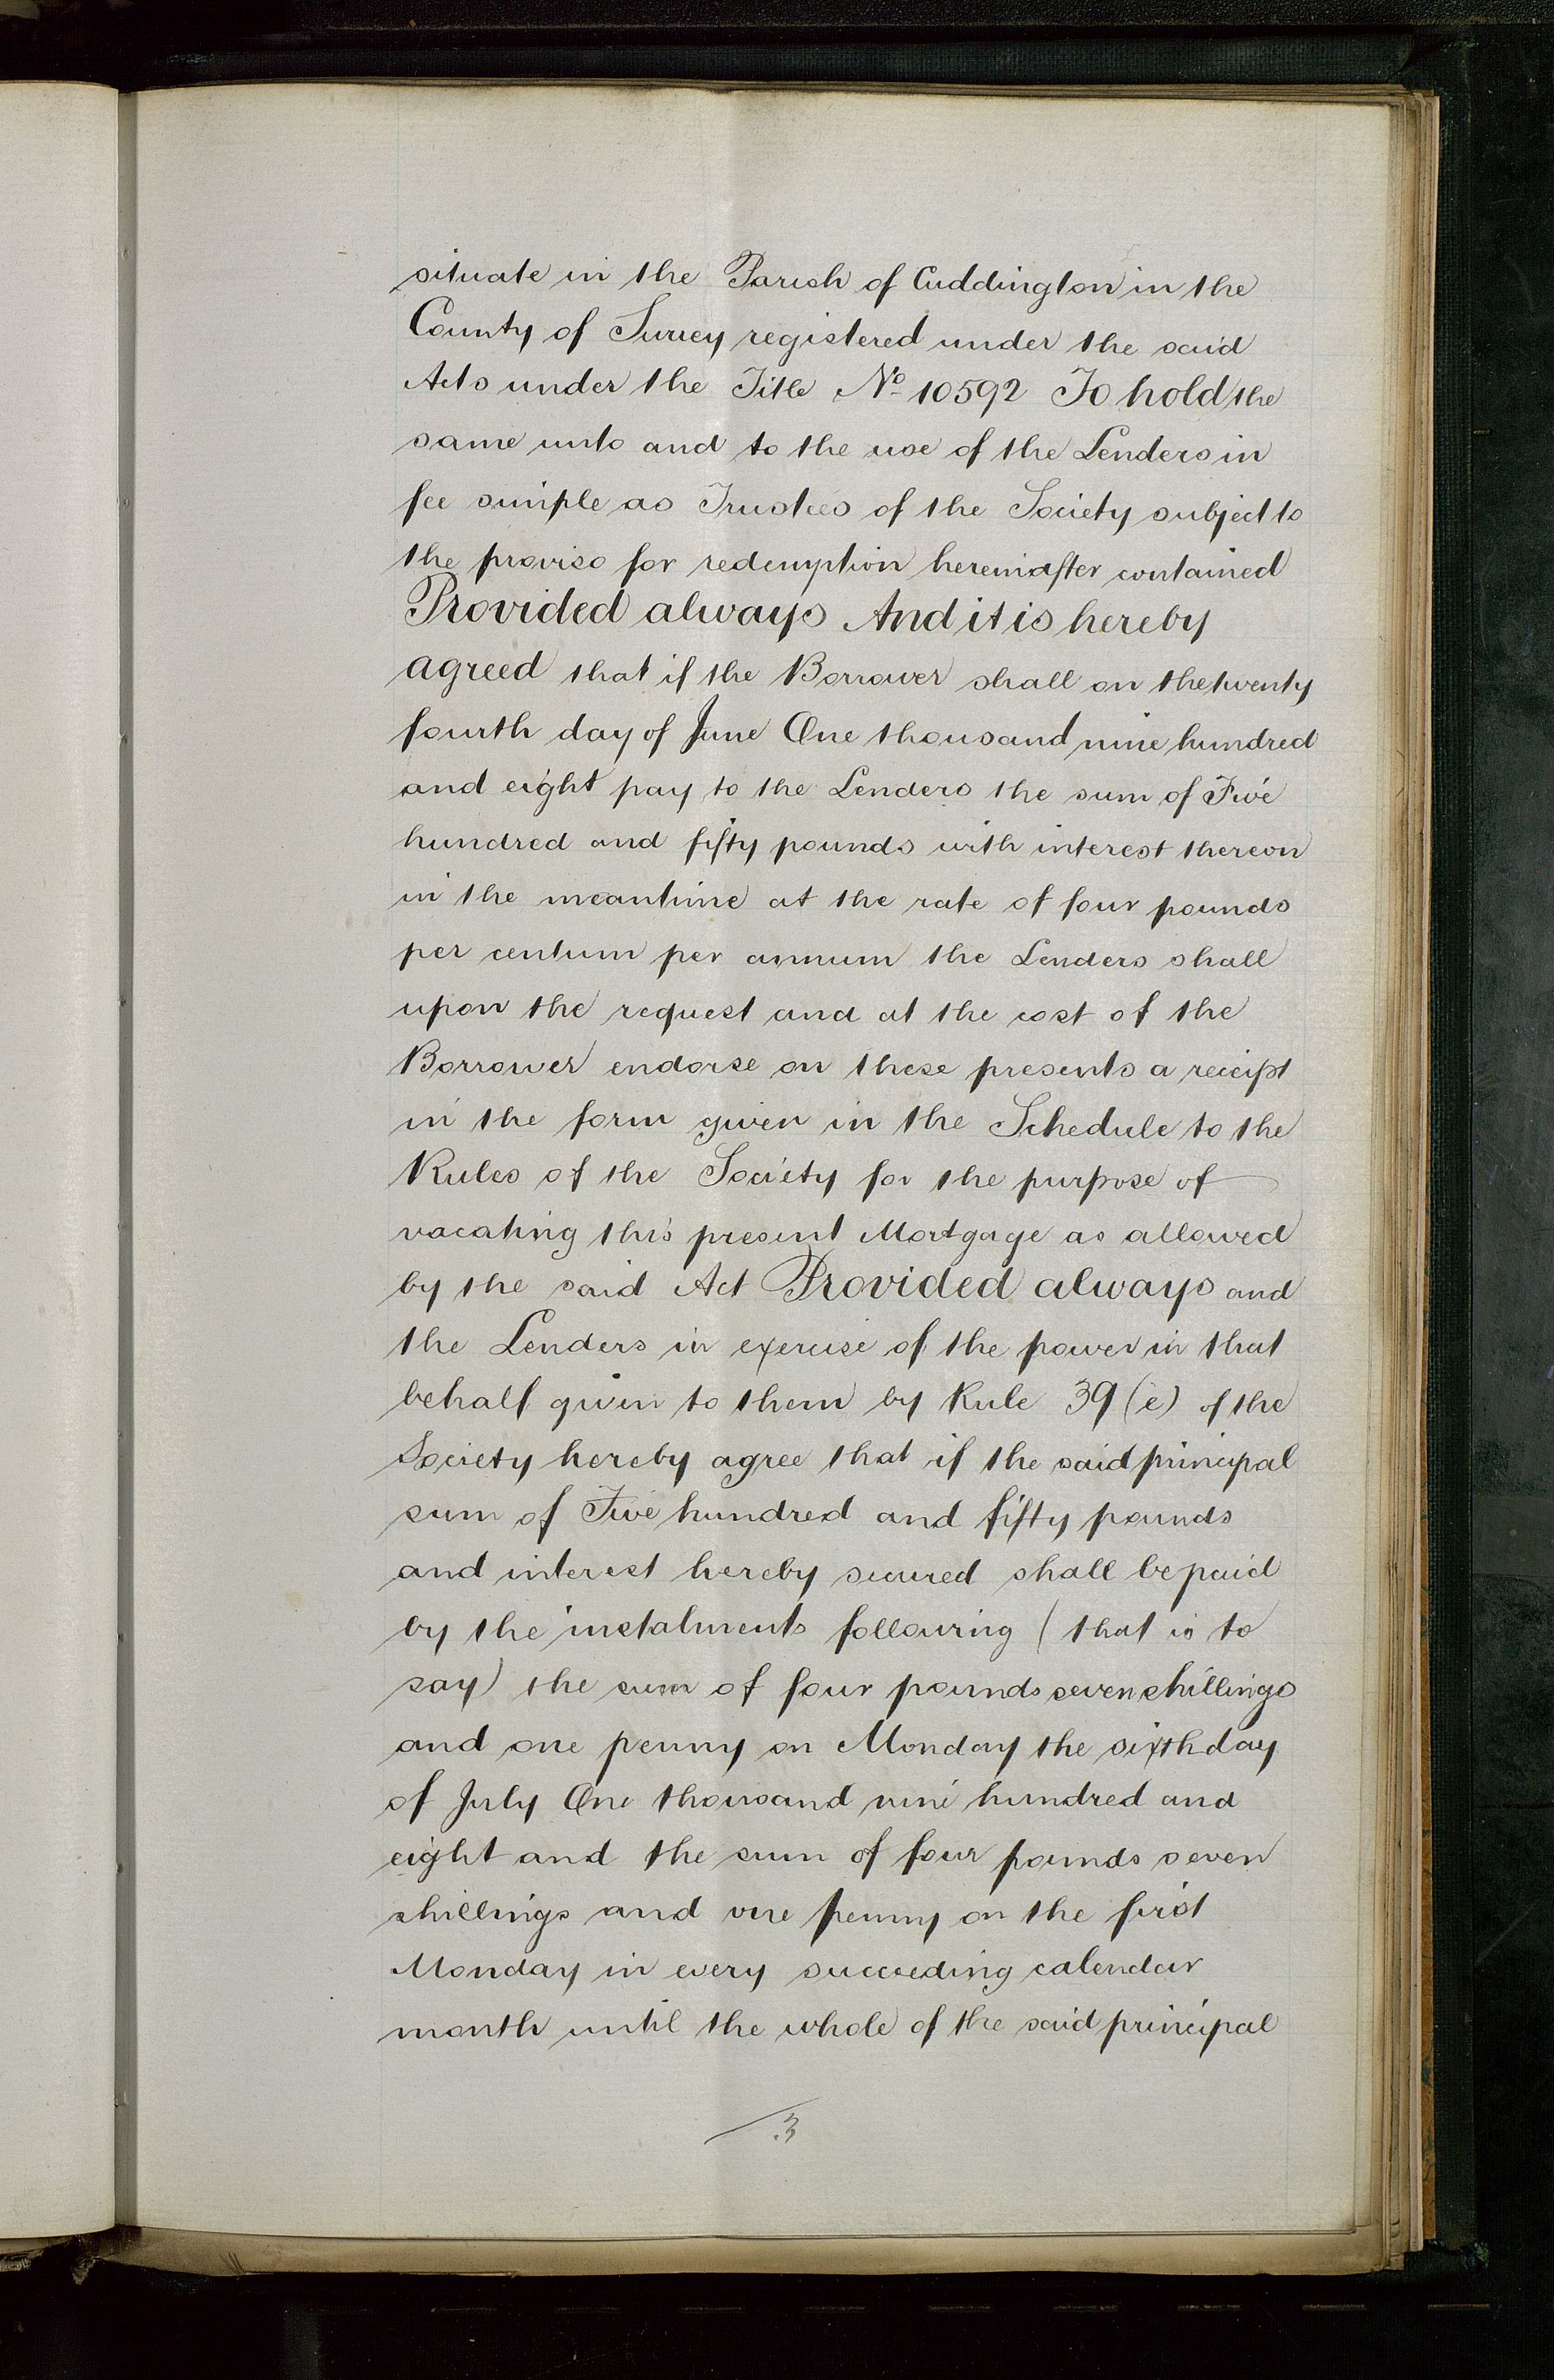 situate in the Parish of Cuddington in the
County of Surrey registered under the said
Acts under the Title No 10592 To hold the
same unto and to the use of the Lenders in
fee simple as Trustees of the Society subject to
the proviso for redemption hereinafter contained
Provided always And it is hereby
agreed that if the Borrower shall on the twenty
fourth day of June One thousand nine hundred
and eight pay to the Lenders the sum of Five
hundred and fifty pounds with interest thereon
in the meantime at the rate of four pounds
per centum per annum the Lenders shall
upon the request and at the cost of the
Borrower endorse on these presents a receipt
in the form given in the Schedule to the
Rules of the Society for the purpose of
vacating this present Mortgage as allowed
by the said Act Provided always and
the Lenders in exercise of the power in that
behalf given to them by Rule 39 (e) of the
Society hereby agree that if the said principal
sum of Five hundred and fifty pounds
and interest hereby secured shall be paid
by the instalments following (that is to
say) the sum of four pounds seven shillings
and one penny on Monday the sixth day
of July One thousand nine hundred and
eight and the sum of four pounds seven
shillings and one penny on the first
Monday in every succeeding calendar
month until the whole of the said principal
3